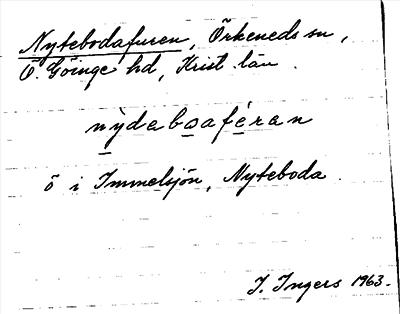 Nytebodafuren, Örkeneds sn,
Ö. Göinge hd, Krist. län.
nỳdabo̲afé̲ran
ö i Immelsjön, Nyteboda.
I. Ingers 1963.